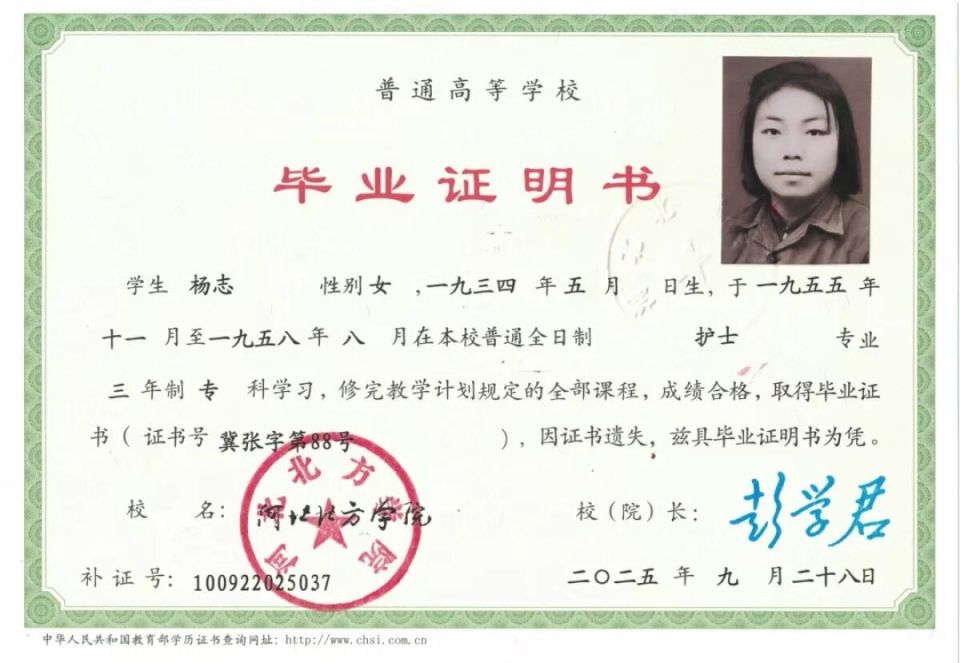 普通高等学校
毕业证明书
学生 杨志 性别 女 ,一九三四 年 五 月 日生, 于 一九五五 年
十一 月至一九五八年 八 月在本校普通全日制 护士 专业
三 年制 专 科学习, 修完教学计划规定的全部课程, 成绩合格, 取得毕业证
书 ( 证书号 冀张字第88号 ), 因证书遗失, 兹具毕业证明书为凭。
校 名: 河北北方学院 校 (院) 长: 彭学君
河北北方学院
补证号: 100922025037 二〇二五 年 九 月 二十八日
中华人民共和国教育部学历证书查询网址: http://www.chsi.com.cn